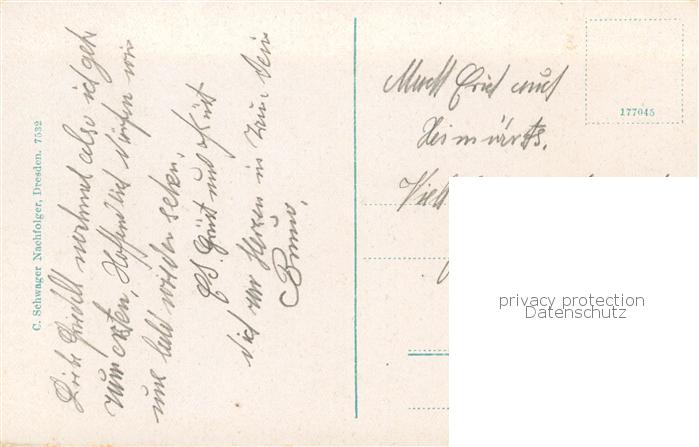 C. Schwager Nachfolger, Dresden. 7532
Liebe nochmal also ich gehe
zum ersten, Hoffentlich dürfen wir
uns bald wieder sehen.
Es Grüßt und küßt
dich von Herzen in Dein
Bruno.
177045
Macht Erich auch
Heimwärts.
privacy protection
Datenschutz